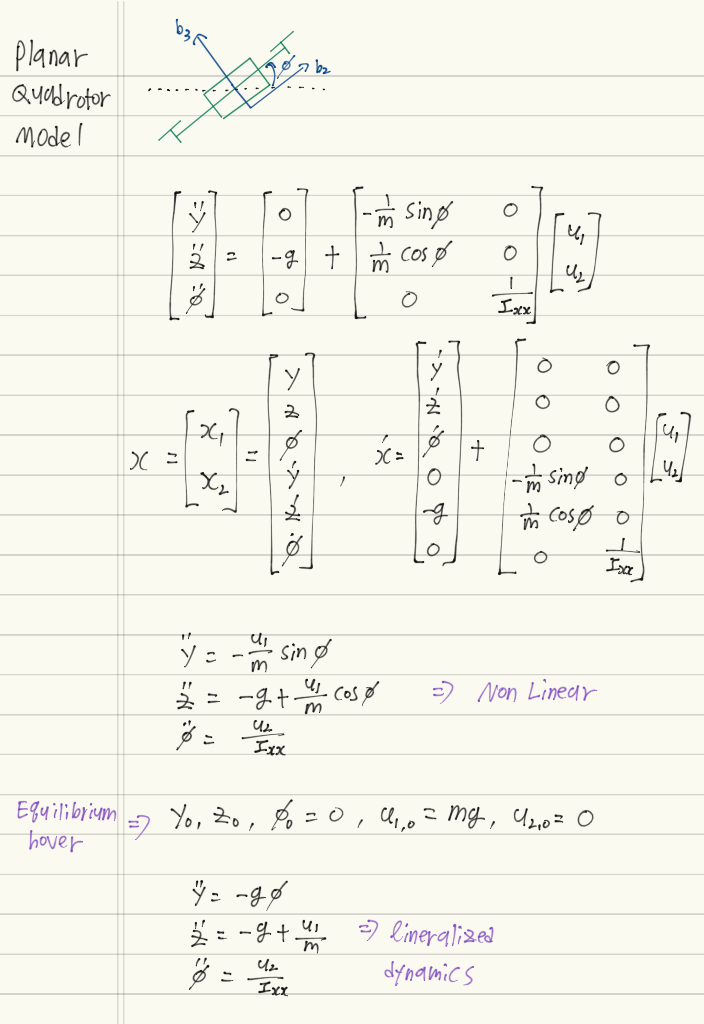 Planar
Quadrotor
Model
b₃
φ
b₂
[ÿ; z̈; φ̈] = [0; -g; 0] + [-1/m sinφ 0; 1/m cosφ 0; 0 1/Ixx] [u₁; u₂]
x = [x₁; x₂] = [y; z; φ; ẏ; ż; φ̇] , ẋ = [ẏ; ż; φ̇; 0; -g; 0] + [0 0; 0 0; 0 0; -1/m sinφ 0; 1/m cosφ 0; 0 1/Ixx] [u₁; u₂]
ÿ = -u₁/m sinφ
z̈ = -g + u₁/m cosφ ⇒ Non Linear
φ̈ = u₂/Ixx
Equilibrium
hover ⇒ y₀, z₀, φ₀ = 0, u₁,₀ = mg, u₂,₀ = 0
ÿ = -gφ
z̈ = -g + u₁/m ⇒ linearlized
dynamics
φ̈ = u₂/Ixx